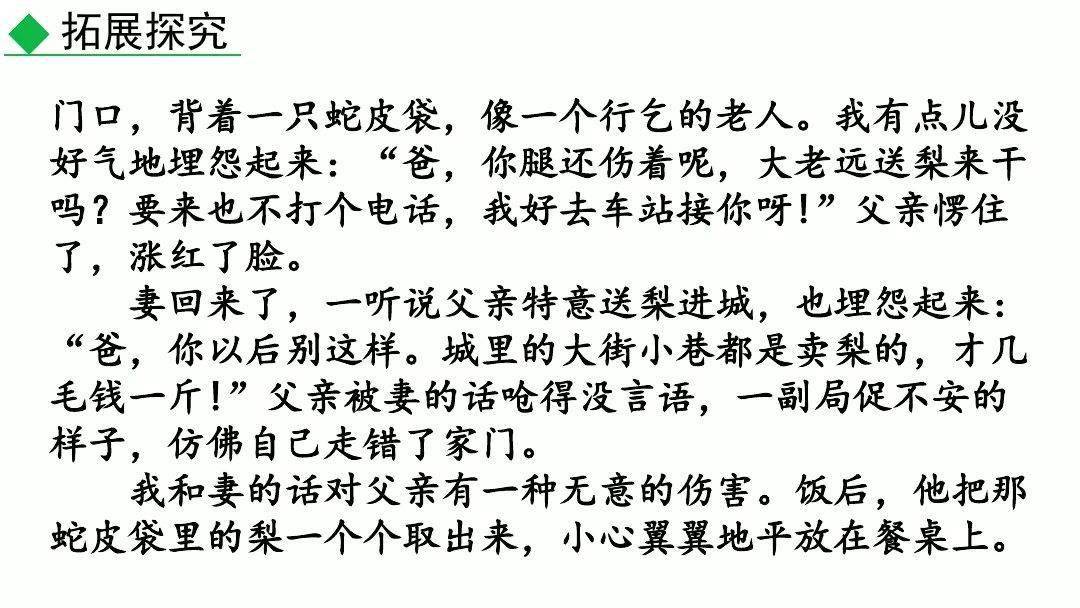 拓展探究
门口，背着一只蛇皮袋，像一个行乞的老人。我有点儿没
好气地埋怨起来：“爸，你腿还伤着呢，大老远送梨来干
吗？要来也不打个电话，我好去车站接你呀！”父亲愣住
了，涨红了脸。
妻回来了，一听说父亲特意送梨进城，也埋怨起来：
“爸，你以后别这样。城里的大街小巷都是卖梨的，才几
毛钱一斤！”父亲被妻的话呛得没言语，一副局促不安的
样子，仿佛自己走错了家门。
我和妻的话对父亲有一种无意的伤害。饭后，他把那
蛇皮袋里的梨一个个取出来，小心翼翼地平放在餐桌上。